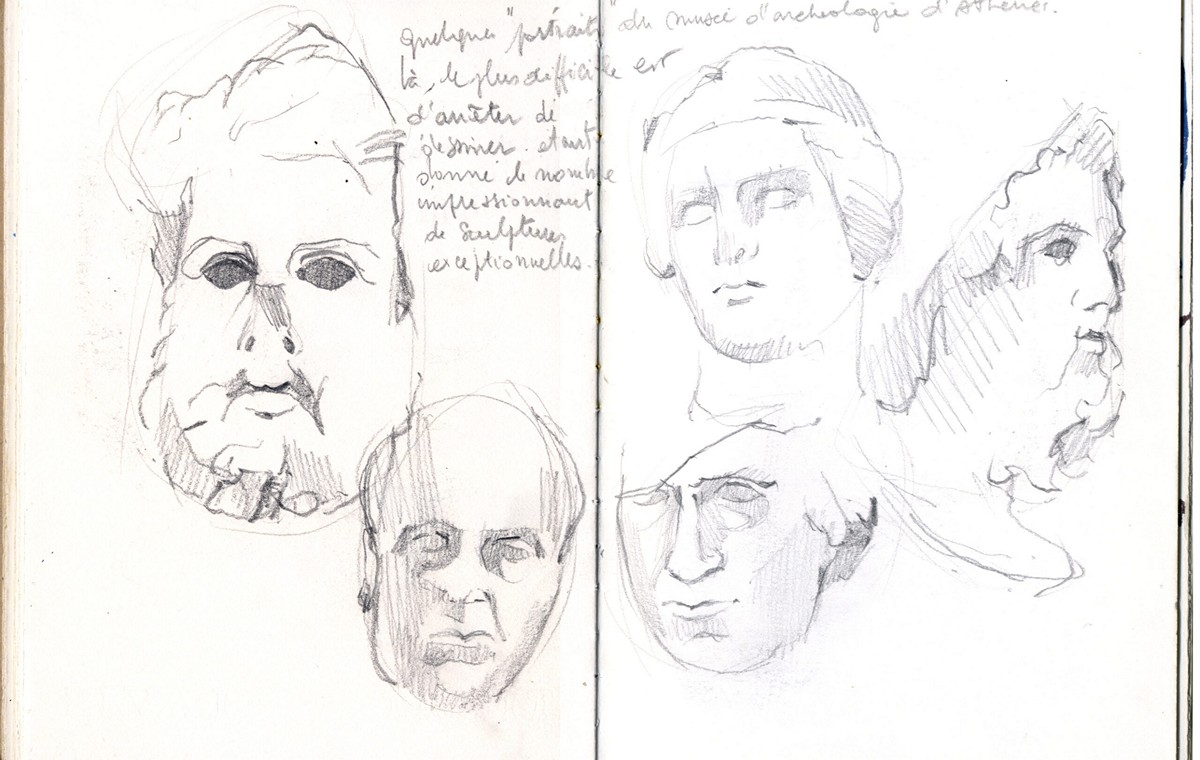 quelques "portraits" du musée d'archéologie d'Athènes.
là, le plus difficile est
d'arrêter de
dessiner. étant
donné le nombre
impressionnant
de sculptures
exceptionnelles.